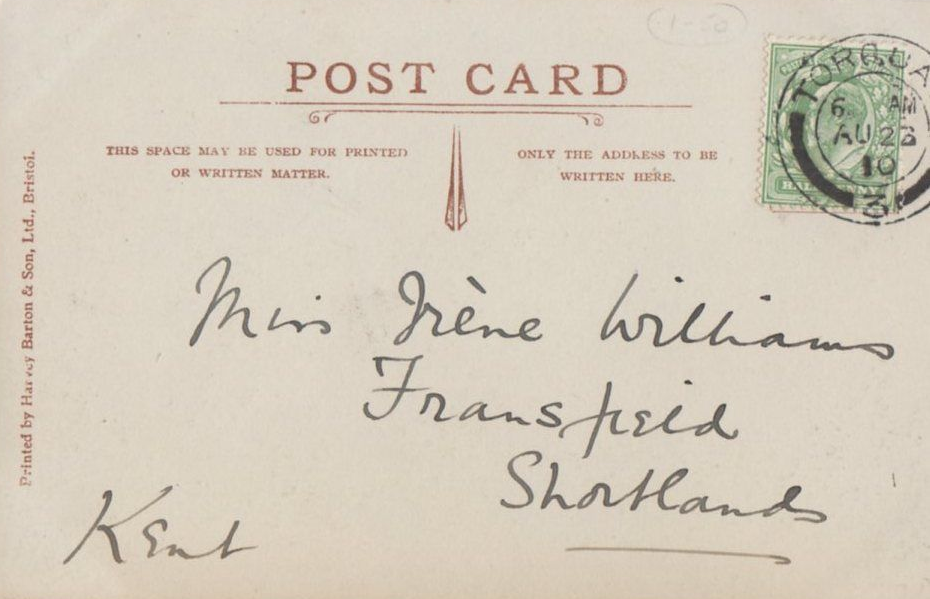 POST CARD
THIS SPACE MAY BE USED FOR PRINTED
OR WRITTEN MATTER.
ONLY THE ADDRESS TO BE
WRITTEN HERE.
TORQUA
6 AM
AU 23
10
HALF PENNY
Printed by Harvey Barton & Son, Ltd., Bristol.
Miss Irène Williams
Fransfield
Shortlands
Kent